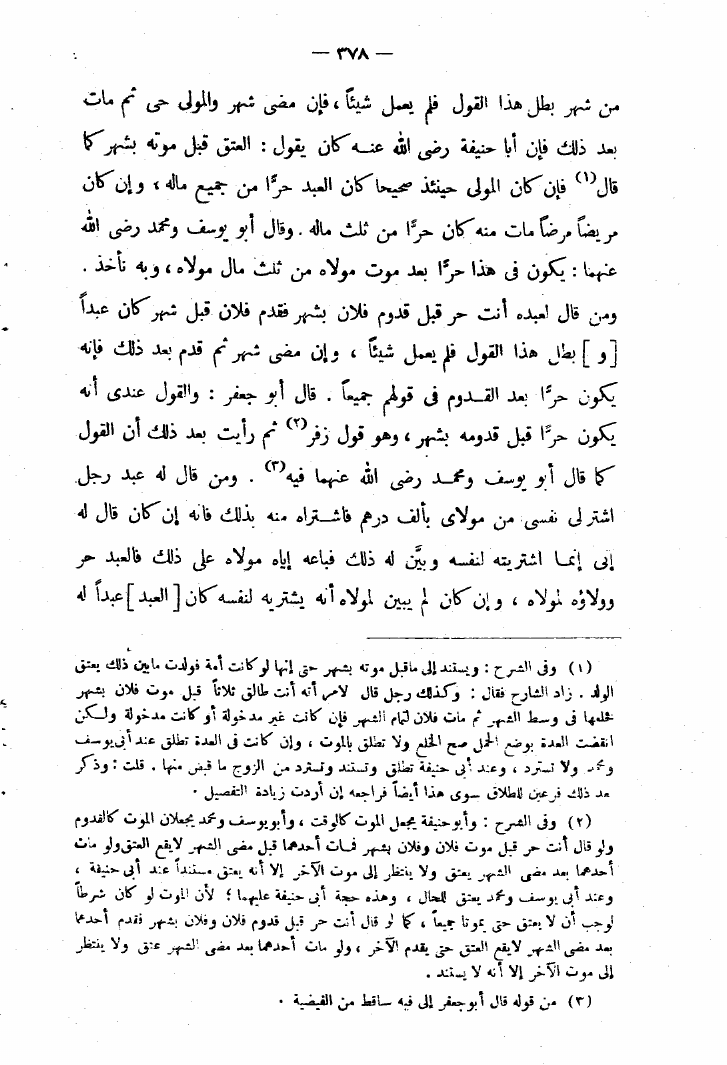 — ٣٧٨ —
من شهر بطل هذا القول فلم يعمل شيئاً ، فإن مضى شهر والمولى حى ثم مات
بعد ذلك فإن أبا حنيفة رضى الله عنه كان يقول : العتق قبل موته بشهر كما
قال(١) فإن كان المولى حينئذ صحيحا كان العبد حرًّا من جميع ماله ، وإن كان
مريضاً مرضاً مات منه كان حرًّا من ثلث ماله . وقال أبو يوسف ومحمد رضى الله
عنهما : يكون فى هذا حرًّا بعد موت مولاه من ثلث مال مولاه ، وبه نأخذ .
ومن قال لعبده أنت حر قبل قدوم فلان بشهر فقدم فلان قبل شهر كان عبداً
[ و ] بطل هذا القول فلم يعمل شيئاً ، وإن مضى شهر ثم قدم بعد ذلك فإنه
يكون حرًّا بعد القدوم فى قولهم جميعاً . قال أبو جعفر : والقول عندى أنه
يكون حرًّا قبل قدومه بشهر ، وهو قول زفر(٢) ثم رأيت بعد ذلك أن القول
كما قال أبو يوسف ومحمد رضى الله عنهما فيه(٣) . ومن قال له عبد رجل
اشتر لى نفسى من مولاى بألف درهم فاشتراه منه بذلك فانه إن كان قال له
إنى إنما اشتريته لنفسه وبيَّن له ذلك فباعه إياه مولاه على ذلك فالعبد حر
وولاؤه لمولاه ، وإن كان لم يبين لمولاه أنه يشتريه لنفسه كان [ العبد ] عبداً له
(١) وفى الشرح : ويستند إلى ماقبل موته بشهر حتى إنها لو كانت أمة فولدت مابين ذلك يعتق
الولد . زاد الشارح فقال : وكذلك رجل قال لامرأته أنت طالق ثلاثاً قبل موت فلان بشهر
فخلعها فى وسط الشهر ثم مات فلان لتمام الشهر فإن كانت غير مدخولة أو كانت مدخولة ولكن
انقضت العدة بوضع الحمل صح الخلع ولا تطلق بالموت ، وإن كانت فى العدة تطلق عند أبى يوسف
ومحمد ولا تسترد ، وعند أبى حنيفة تطلق وتستند وتسترد من الزوج ما قبض منها . قلت : وذكر
بعد ذلك فرعين للطلاق سوى هذا أيضاً فراجعه إن أردت زيادة التفصيل .
(٢) وفى الشرح : وأبو حنيفة يجعل الموت كالوقت ، وأبو يوسف ومحمد يجعلان الموت كالقدوم
ولو قال أنت حر قبل موت فلان وفلان بشهر فمات أحدهما قبل مضى الشهر لايقع العتق ولو مات
أحدهما بعد مضى الشهر يعتق ولا ينتظر إلى موت الآخر إلا أنه يعتق مستنداً عند أبى حنيفة ،
وعند أبى يوسف ومحمد يعتق للحال ، وهذه حجة أبى حنيفة عليهما ؛ لأن الموت لو كان شرطاً
لوجب أن لا يعتق حتى يموتا جميعاً ، كما لو قال أنت حر قبل قدوم فلان وفلان بشهر فقدم أحدهما
بعد مضى الشهر لايقع العتق حتى يقدم الآخر ، ولو مات أحدهما بعد مضى الشهر عتق ولا ينتظر
إلى موت الآخر إلا أنه لا يستند .
(٣) من قوله قال أبو جعفر إلى فيه ساقط من الفيضية .